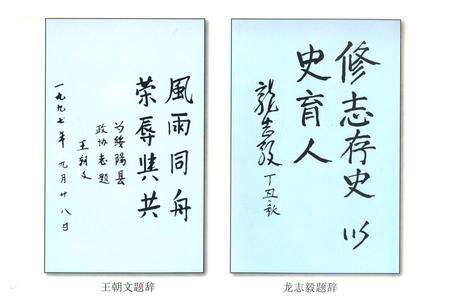 風雨同舟
荣辱與共
为绥陽县
政协志题
王朝文
一九九七年九月廿八日
王朝文题辞
修志存史以
史育人
龍志毅
丁丑秋
龙志毅题辞